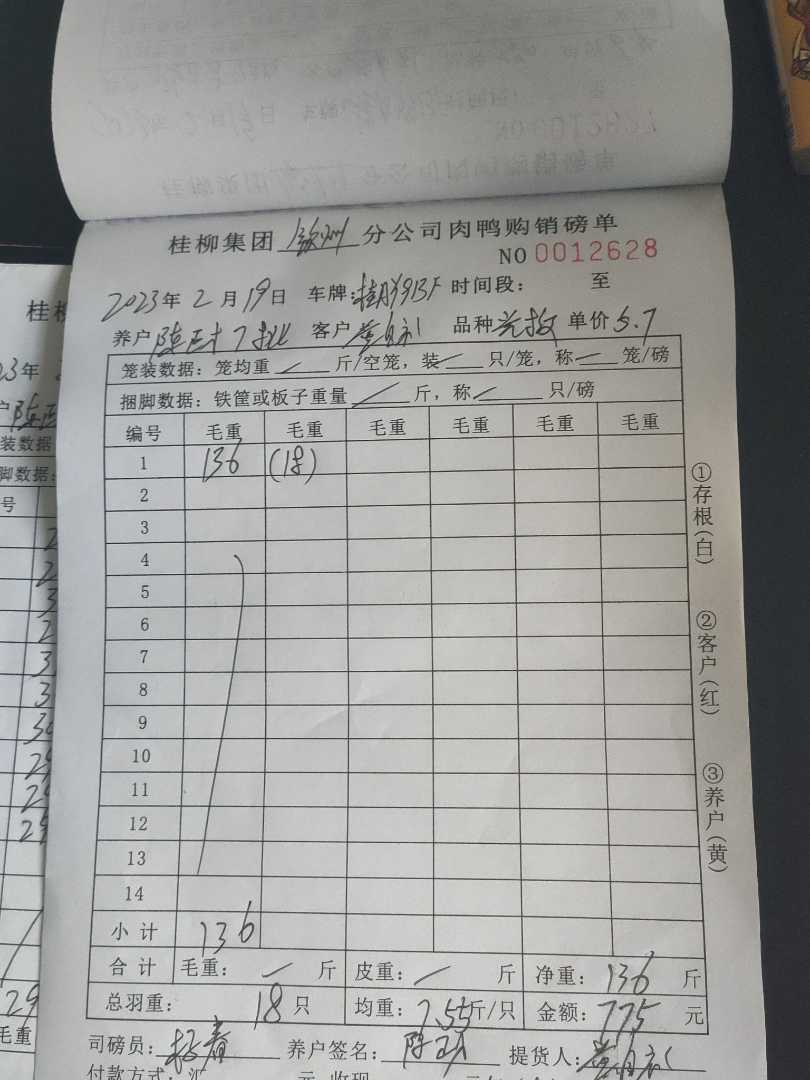 桂柳集团 钦州 分公司肉鸭购销磅单
NO 0012628
2023年 2月 19日 车牌: 时间段: 至
养户 陈 7批 客户 品种 单价 5.7
笼装数据: 笼均重 斤/空笼, 装 只/笼, 称 笼/磅
捆脚数据: 铁筐或板子重量 斤, 称 只/磅
编号 毛重 毛重 毛重 毛重 毛重 毛重
1 136 (18)
2
3
4
5
6
7
8
9
10
11
12
13
14
小计 136
合计 毛重: 斤 皮重: 斤 净重: 136 斤
总羽重: 18 只 均重: 7.55 斤/只 金额: 775 元
司磅员: 养户签名: 陈 提货人:
付款方式: 元 收现
①存根(白)
②客户(红)
③养户(黄)
桂
23年
户
装数据
脚数据:
号
29
毛重